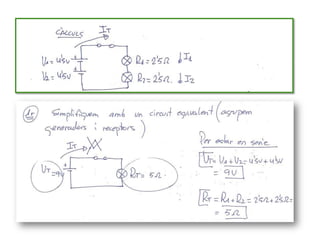 CÀLCULS
IT
V1=4'5V
R1=2'5Ω ↓I1
V2=4'5V
R2=2'5Ω ↓I2
1r Simplifiquem amb un circuit equivalent (agrupem
generadors i receptors)
IT
Per estar en sèrie
VT=9V
RT=5Ω
VT=V1+V2=4'5V+4'5V
=9V
RT=R1+R2=2'5Ω+2'5Ω=
=5Ω